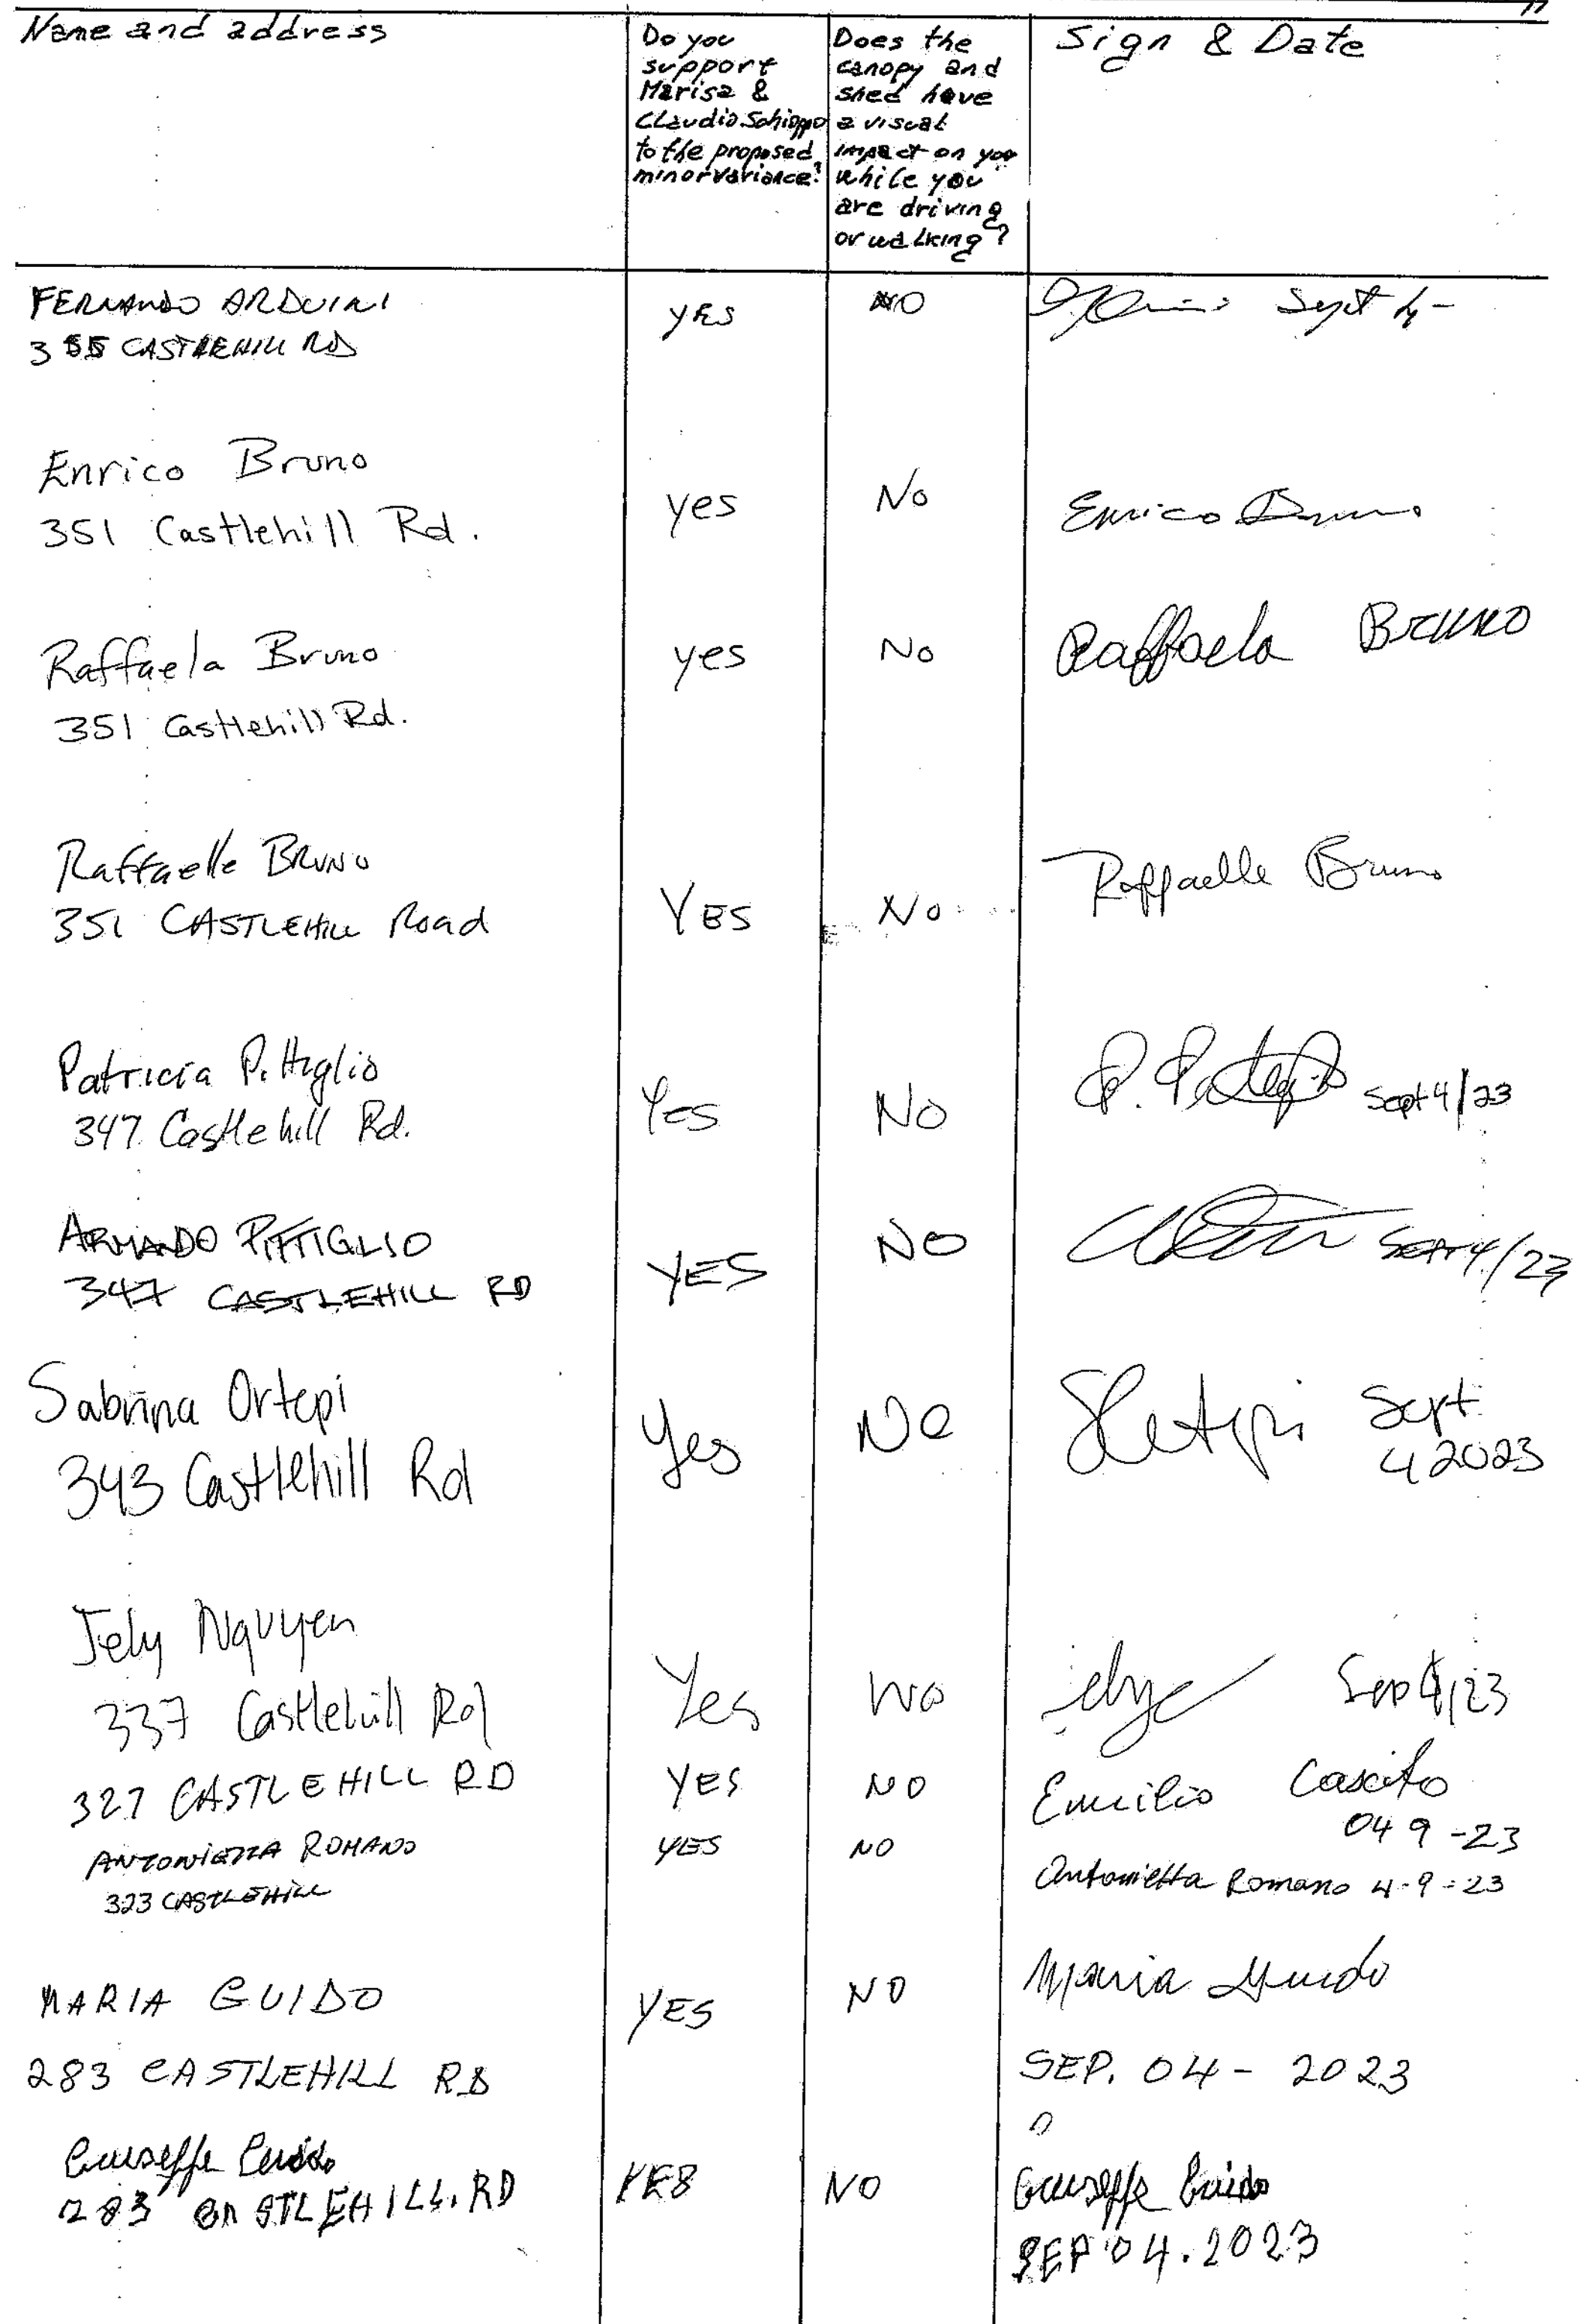 Name and address
Do you
support
Marisa &
Claudio Schioppo
to the proposed
minor variance?
Does the
canopy and
shed have
a visual
impact on you
while you
are driving
or walking?
Sign & Date
FERNANDO ARDUINI
355 CASTLEHILL RD
YES
NO
Sept 4-
Enrico Bruno
351 Castlehill Rd.
yes
No
Enrico Bruno
Raffaela Bruno
351 Castlehill Rd.
yes
No
Raffaela Bruno
Raffaelle BRUNO
351 CASTLEHILL Road
YES
No
Raffaelle Bruno
Patricia Pittiglio
347 Castlehill Rd.
Yes
No
Sept 4/23
ARMANDO PITTIGLIO
347 CASTLEHILL RD
YES
NO
SEPT 4/23
Sabrina Ortepi
343 Castlehill Rd
Yes
No
SOrtepi Sept
4 2023
Jely Nguyen
337 Castlehill Rd
Yes
No
Sep 4/23
327 CASTLEHILL RD
YES
NO
Emilio Cascito
04 9 -23
ANTONIETTA ROMANO
323 CASTLEHILL
YES
NO
Antonietta Romano 4-9-23
MARIA GUIDO
283 CASTLEHILL RD
YES
NO
Maria Guido
SEP. 04- 2023
Giuseppe Guido
283 CASTLEHILL. RD
YES
NO
Giuseppe Guido
SEP 04.2023